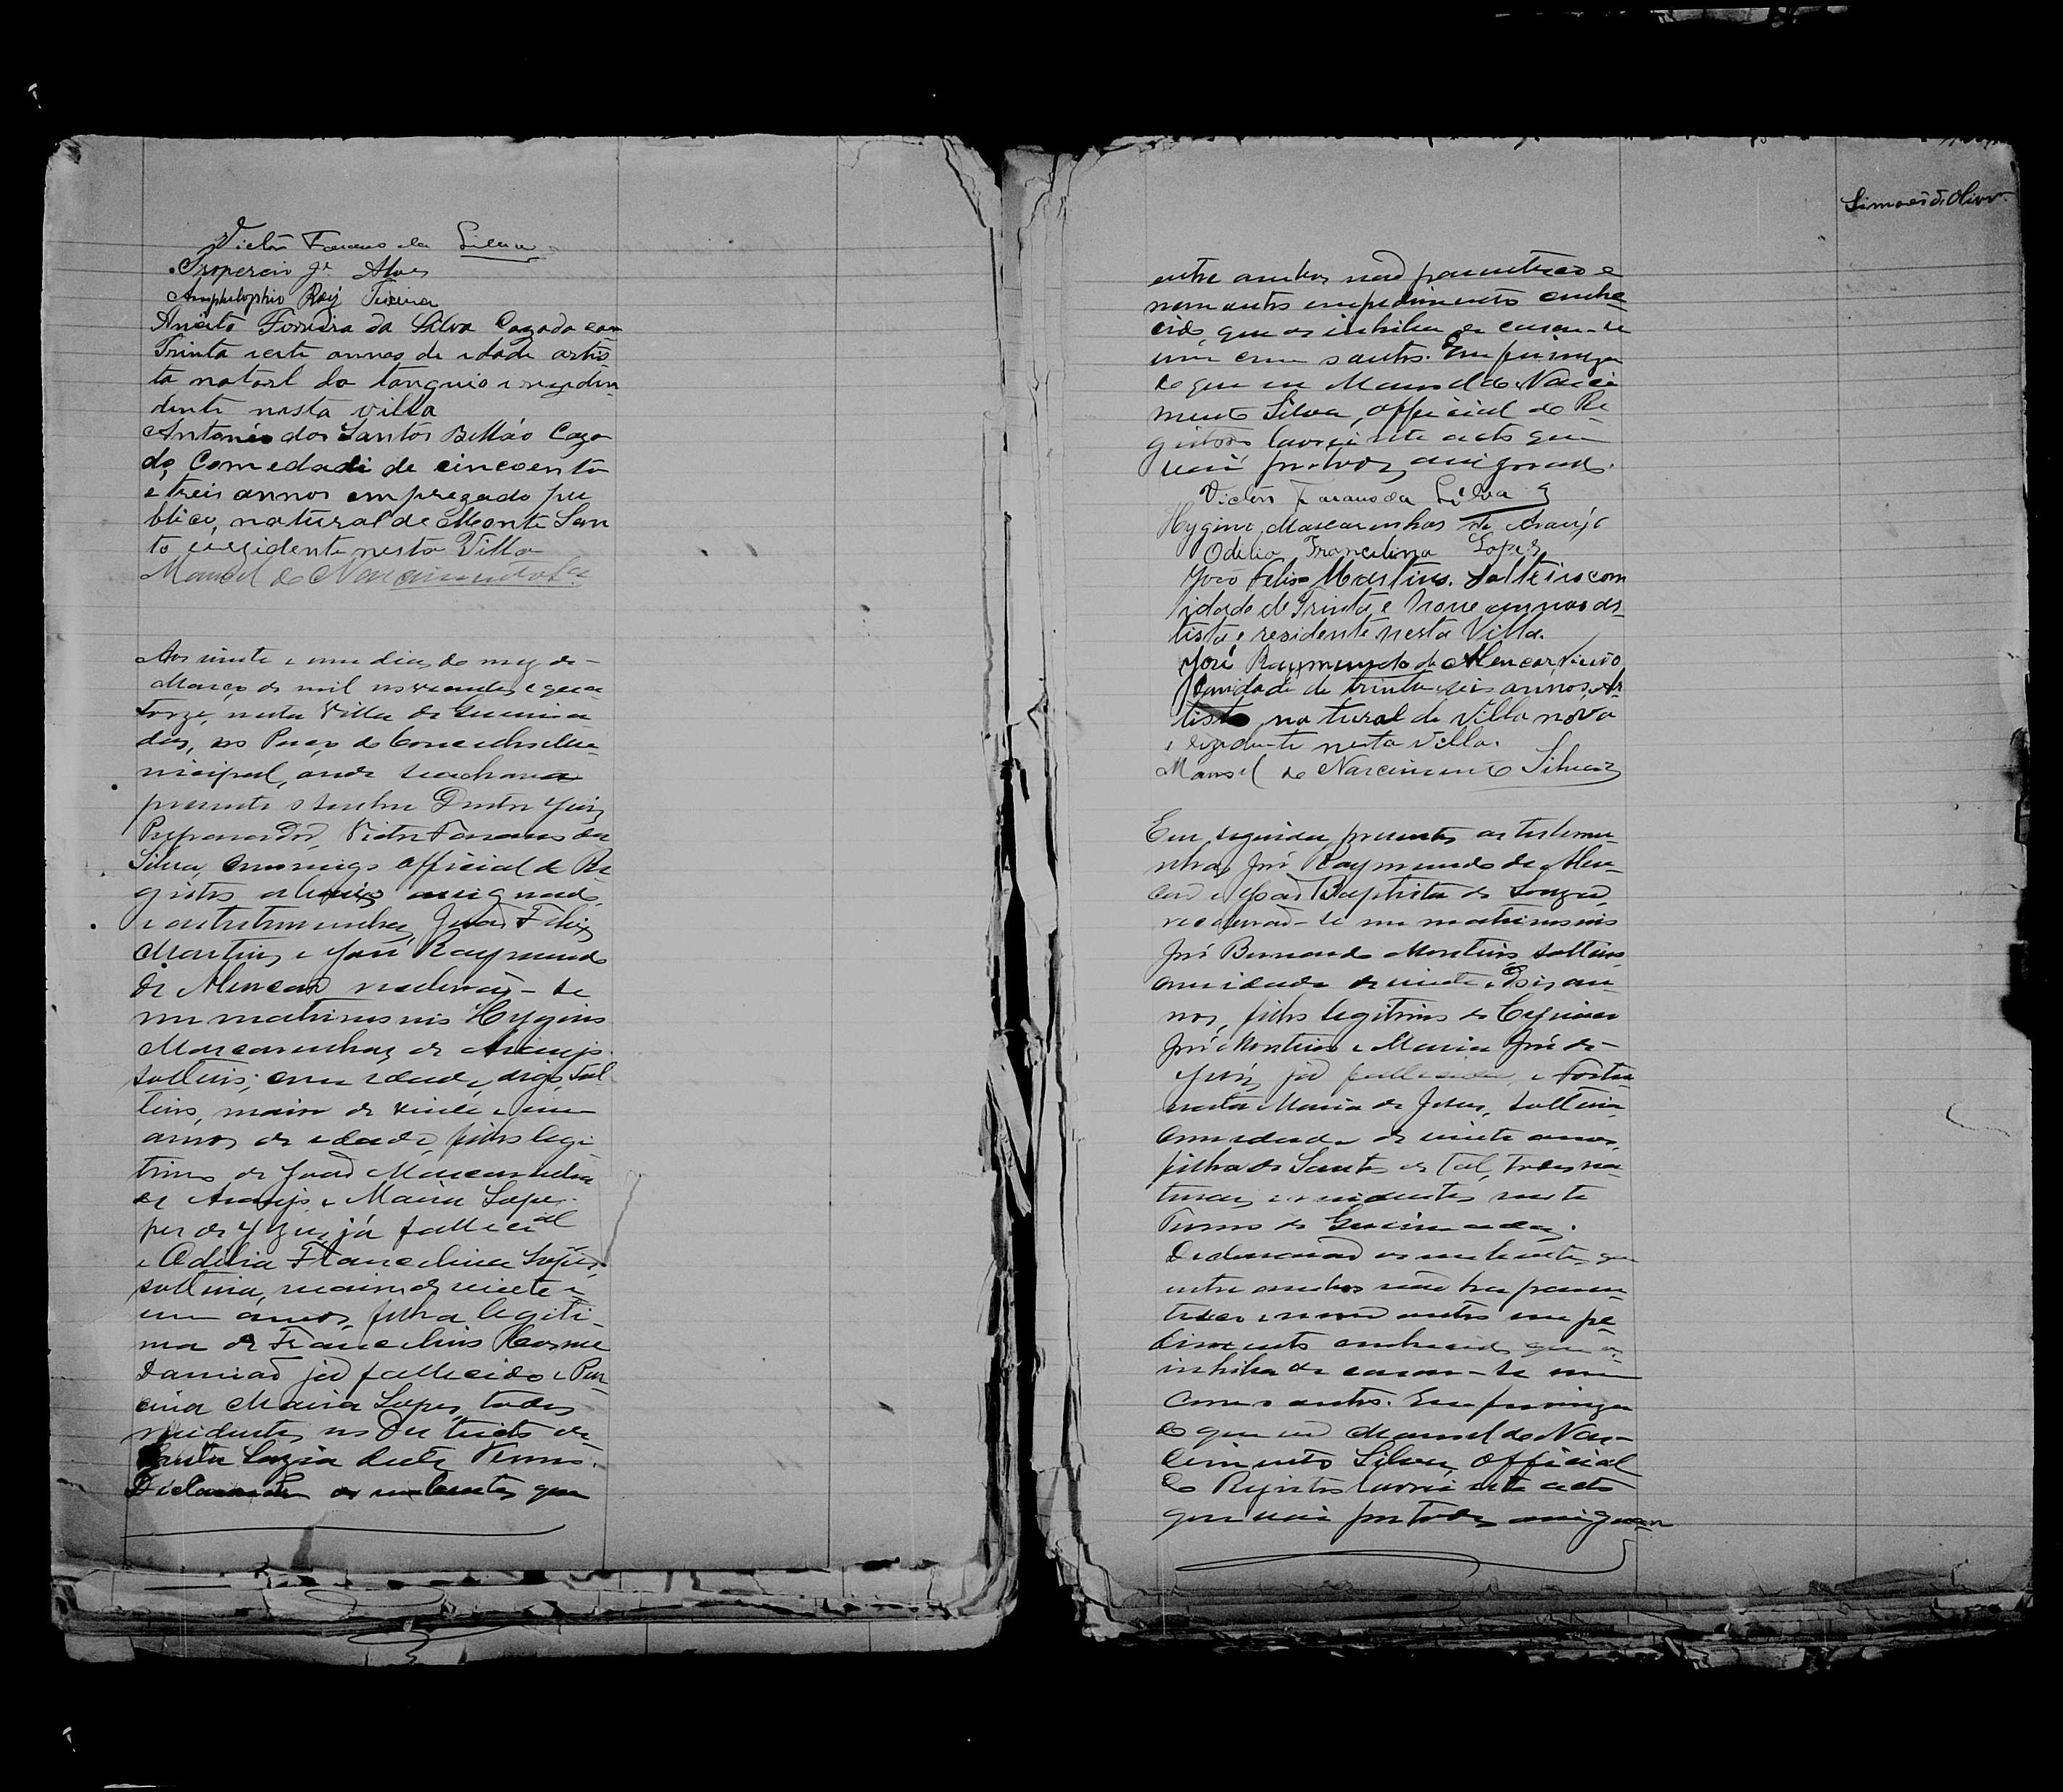 Victor Farano da Silva
Propercio Jr Alves
Amphilophio Roiz Teixeira
Aniceto Ferreira da Silva Cazado com
Trinta sete annos de idade artis
ta natural do tanquio e rezedin
dente nesta villa
Antonio dos Santos Bettão Caza
do, Com edade de cincoenta
e treis annos empregado pu
blico, natural de Monte San
to e rezidente nesta Villa
Manoel do Nascimento Sa
Aos vinte e um dias do mez de
Março de mil novecentos e qua
torze, nesta Villa de Queima
das, no Paço do Conselho Mu
nicipal, onde se achava
presente o senhor Doutor Juiz
Preparador, Victor Farano da
Silva, commigo Official do Re
gistro abaixo assignado,
e as testemunhas João Felix
Martins e José Raymundo
de Alencar receberão-se
em matrimonio Hygino
Mascarenhas de Araujo
solteiro, com idade, digo, sol
teiro, maior de vinte e um
annos de idade, filho legi
timo de João Mascarenhas
de Araujo e Maria Lope
pes de já fallecida
e Odilia Francelina Lopes,
solteira, maior de vinte e
um annos, filha legiti-
ma de Francelino Cosme
Damião já fallecido e
Maria Lopes, todos
residentes no Districto de
Santa Luzia deste Termo.
Declararão os nubentes que
Simões d'Olivra
entre ambos não ha parentesco e
nem outro impedimento conhe
cido, que os inhiba de casar-se
um com o outro. Em firmeza
do que eu Manoel do Nasci
mento Silva, Official do Re
gistro lavrei este acto que
vai por todos assignado.
Victor Farano da Silva
Hygino Mascarenhas de Araujo
Odilia Francelina Lopes
João Felix Martins. Solteiro com
idade de Trinta e Nove annos ar
tista e rezidente nesta Villa.
José Raymundo de Alencar Viuvo
Com idade de trinta seis annos, Ar
tista natural de Villa nova
e rezidente nesta villa.
Manoel do Nascimento Silva
Em seguida, presentes as testemu
nhas José Raymundo de Alen
car e João Baptista de Souza,
receberão-se em matrimonio
José Bernardo Monteiro, solteiro
com idade de vinte e dois an
nos, filho legitimo de
José Monteiro e Maria José de
Jesus, já fallecida, e Fortu
nata Maria de Jesus, solteira
com idade de vinte annos,
filha de Santos de tal, todos na
turaes e residentes neste
Termo de Queimadas.
Declararão os nubentes, que
entre ambos não ha paren
tesco e nem outro impe
dimento conhecido que os
inhiba de casar-se um
com o outro. Em firmeza
do que eu Manoel do Nas-
cimento Silva, Official
do Registro lavrei este acto
que vai por todos assignado